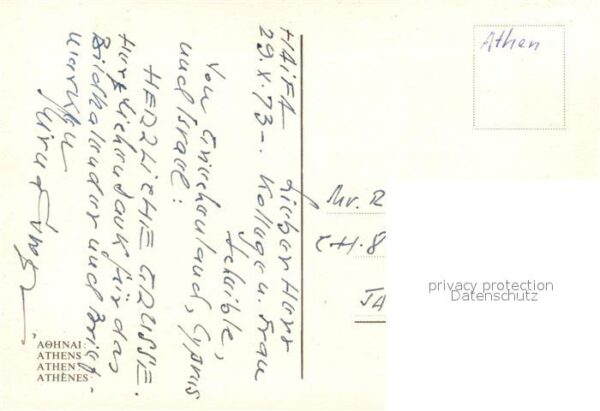 HAIFA
29.X.73-.
Lieber Herr
Kollege u. Frau
Schaible,
Von Griechenland, Cyprus
und Israel:
HERZLICHE GRÜSSE.
Herzlichen Dank für das
Bildkalender und Brief-
marken
Athen
Mr. R
CH. 8
TA
privacy protection
Datenschutz
ΑΘΗΝΑΙ:
ATHENS
ATHEN
ATHÈNES